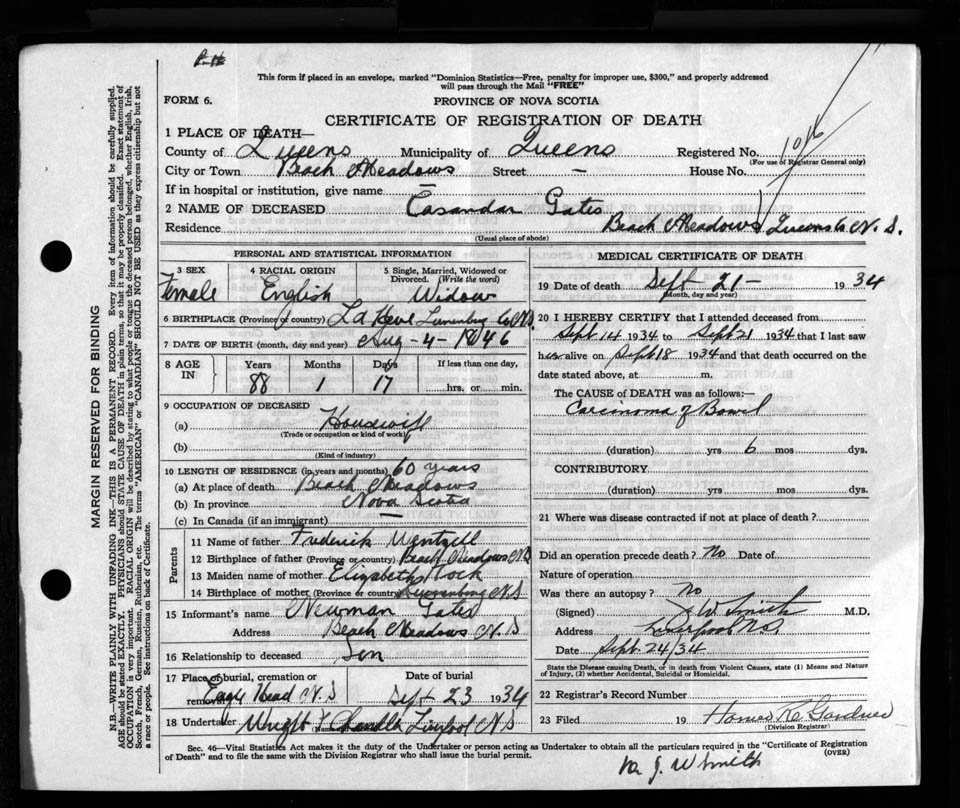 This form if placed in an envelope, marked "Dominion Statistics—Free, penalty for improper use, $300," and properly addressed
will pass through the Mail "FREE"
FORM 6.
PROVINCE OF NOVA SCOTIA
CERTIFICATE OF REGISTRATION OF DEATH
10th
1 PLACE OF DEATH—
County of Queens Municipality of Queens Registered No.
(For use of Registrar General only)
City or Town Beach Meadows Street — House No.
If in hospital or institution, give name —
2 NAME OF DECEASED Casandar Gates
Residence Beach Meadows Queens Co N. S.
(Usual place of abode)
PERSONAL AND STATISTICAL INFORMATION
3 SEX 4 RACIAL ORIGIN 5 Single, Married, Widowed or
Divorced. (Write the word)
Female English Widow
6 BIRTHPLACE (Province or country) La Have Lunenburg Co N.S.
7 DATE OF BIRTH (month, day and year) Aug - 4 - 1846
8 AGE IN Years Months Days If less than one day,
88 1 17 hrs. or min.
9 OCCUPATION OF DECEASED
(a) Housewife
(Trade or occupation or kind of work)
(b)
(Kind of industry)
10 LENGTH OF RESIDENCE (in years and months) 60 years
(a) At place of death Beach Meadows
(b) In province Nova Scotia
(c) In Canada (if an immigrant) —
Parents
11 Name of father Frederick Wentzell
12 Birthplace of father (Province or country) Beach Meadows N.S
13 Maiden name of mother Elizabeth
14 Birthplace of mother (Province or country) Lunenburg N.S
15 Informant's name Newman Gates
Address Beach Meadows N. S
16 Relationship to deceased Son
17 Place of burial, cremation or Date of burial
removal Eagle Head N. S Sept 23 1934
18 Undertaker Wright & Chandler Liverpool N S
MEDICAL CERTIFICATE OF DEATH
19 Date of death Sept 21 - 1934
(Month, day and year)
20 I HEREBY CERTIFY that I attended deceased from
Sept 14 1934 to Sept 21 1934 that I last saw
her alive on Sept 18 1934 and that death occurred on the
date stated above, at m.
The CAUSE of DEATH was as follows:—
Carcinoma of Bowel
(duration) yrs 6 mos dys.
CONTRIBUTORY
(duration) yrs mos dys.
21 Where was disease contracted if not at place of death?
Did an operation precede death? No Date of
Nature of operation
Was there an autopsy? No
(Signed) J W Smith M.D.
Address Liverpool N.S
Date Sept. 24/34
State the Disease causing Death, or in death from Violent Causes, state (1) Means and Nature
of Injury, (2) whether Accidental, Suicidal or Homicidal.
22 Registrar's Record Number
23 Filed 19 Homer K Gardner
(Division Registrar)
Sec. 46—Vital Statistics Act makes it the duty of the Undertaker or person acting as Undertaker to obtain all the particulars required in the "Certificate of Registration
of Death" and to file the same with the Division Registrar who shall issue the burial permit.
(OVER)
J. W Smith
MARGIN RESERVED FOR BINDING
N.B.—WRITE PLAINLY WITH UNFADING INK—THIS IS A PERMANENT RECORD. Every item of information should be carefully supplied.
AGE should be stated EXACTLY. PHYSICIANS should STATE CAUSE OF DEATH in plain terms, so that it may be properly classified. Exact statement of
OCCUPATION is very important. RACIAL ORIGIN will be described by stating to what people or tongue the deceased person belonged, whether English, Irish,
Scotch, French, German, Russian, Ruthenian, etc. The terms "AMERICAN" or "CANADIAN" SHOULD NOT BE USED as they express citizenship but not
a race or people. See instructions on back of Certificate.